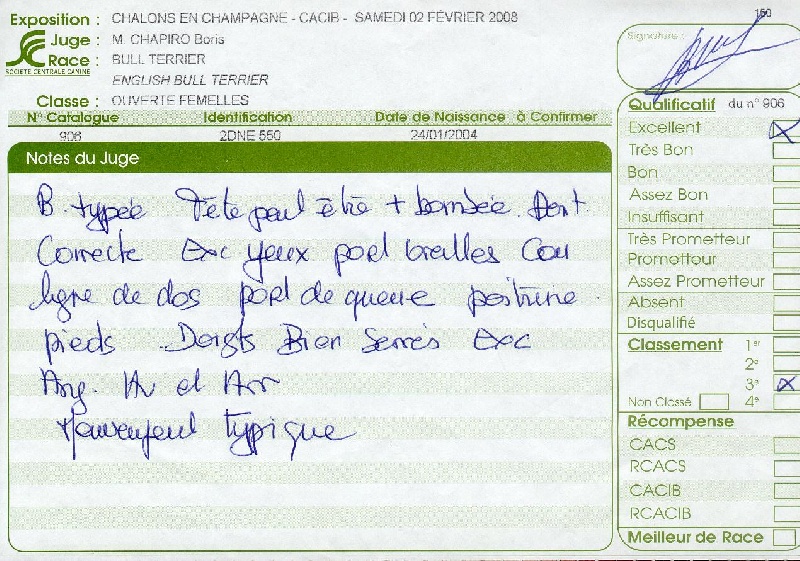 Exposition : CHALONS EN CHAMPAGNE - CACIB - SAMEDI 02 FÉVRIER 2008
Juge : M. CHAPIRO Boris
Race : BULL TERRIER
SOCIETE CENTRALE CANINE
ENGLISH BULL TERRIER
Classe : OUVERTE FEMELLES
N° Catalogue Identification Date de Naissance à Confirmer
906 2DNE 550 24/01/2004
Notes du Juge
B. typée Tête peut être + bombée. Dent
Correcte Exc yeux port oreilles Cou
ligne de dos port de queue poitrine.
pieds Doigts Bien Serrés Exc
Ang. Av et Arr
Mouvement typique
160
Signature :
Qualificatif du n° 906
Excellent
Très Bon
Bon
Assez Bon
Insuffisant
Très Prometteur
Prometteur
Assez Prometteur
Absent
Disqualifié
Classement 1er
2e
3e
Non Classé 4e
Récompense
CACS
RCACS
CACIB
RCACIB
Meilleur de Race